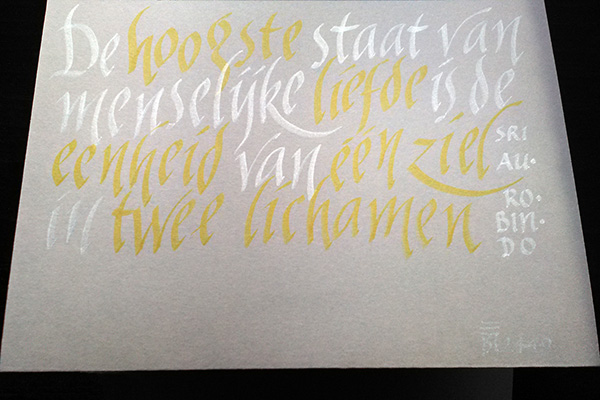 De hoogste staat van
menselijke liefde is de
eenheid van één ziel
in twee lichamen
SRI
AU•
RO•
BIN•
DO